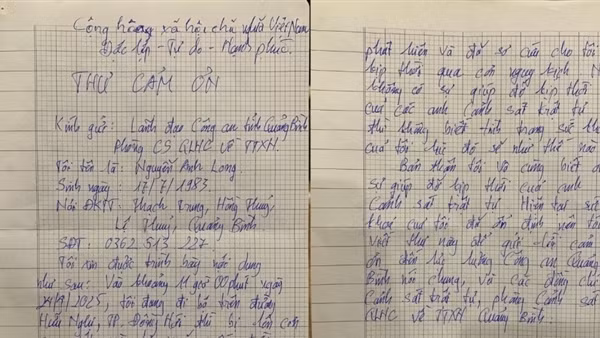 Cộng hòa xã hội chủ nghĩa Việt Nam
Độc lập - Tự do - Hạnh phúc.
THƯ CẢM ƠN
Kính gửi: Lãnh đạo Công an tỉnh Quảng Bình
Phòng CS QLHC về TTXH.
Tôi tên là: Nguyễn Anh Long.
Sinh ngày: 17/7/1983.
Nơi ĐKTT: Thạch Trung, Hồng Thuỷ,
Lệ Thuỷ, Quảng Bình
SĐT: 0362 513 227.
Tôi xin được trình bày nội dung
như sau: Vào khoảng 11 giờ 00 phút ngày
24/9/2025, tôi đang đi bộ trên đường
Hữu Nghị, TP. Đồng Hới thì bị lên cơn
phát hiện và đã sơ cứu cho tôi
kịp thời qua cơn nguy kịch N
không có sự giúp đỡ kịp thời
của các anh Cảnh sát trật tự
thì không biết tình trạng sức kh
của tôi lúc đó sẽ như thế nào
Bản thân tôi vô cùng biết ơ
sự giúp đỡ kịp thời của anh
Cảnh sát trật tự. Hiện tại sức
khoẻ của tôi đã ổn định nên tôi
viết thư này để gửi lời cảm
ơn đến lực lượng Công an Quảng
Bình nói chung, với các đồng chí
Cảnh sát trật tự, phòng Cảnh sát
QLHC về TTXH Quảng Bình.